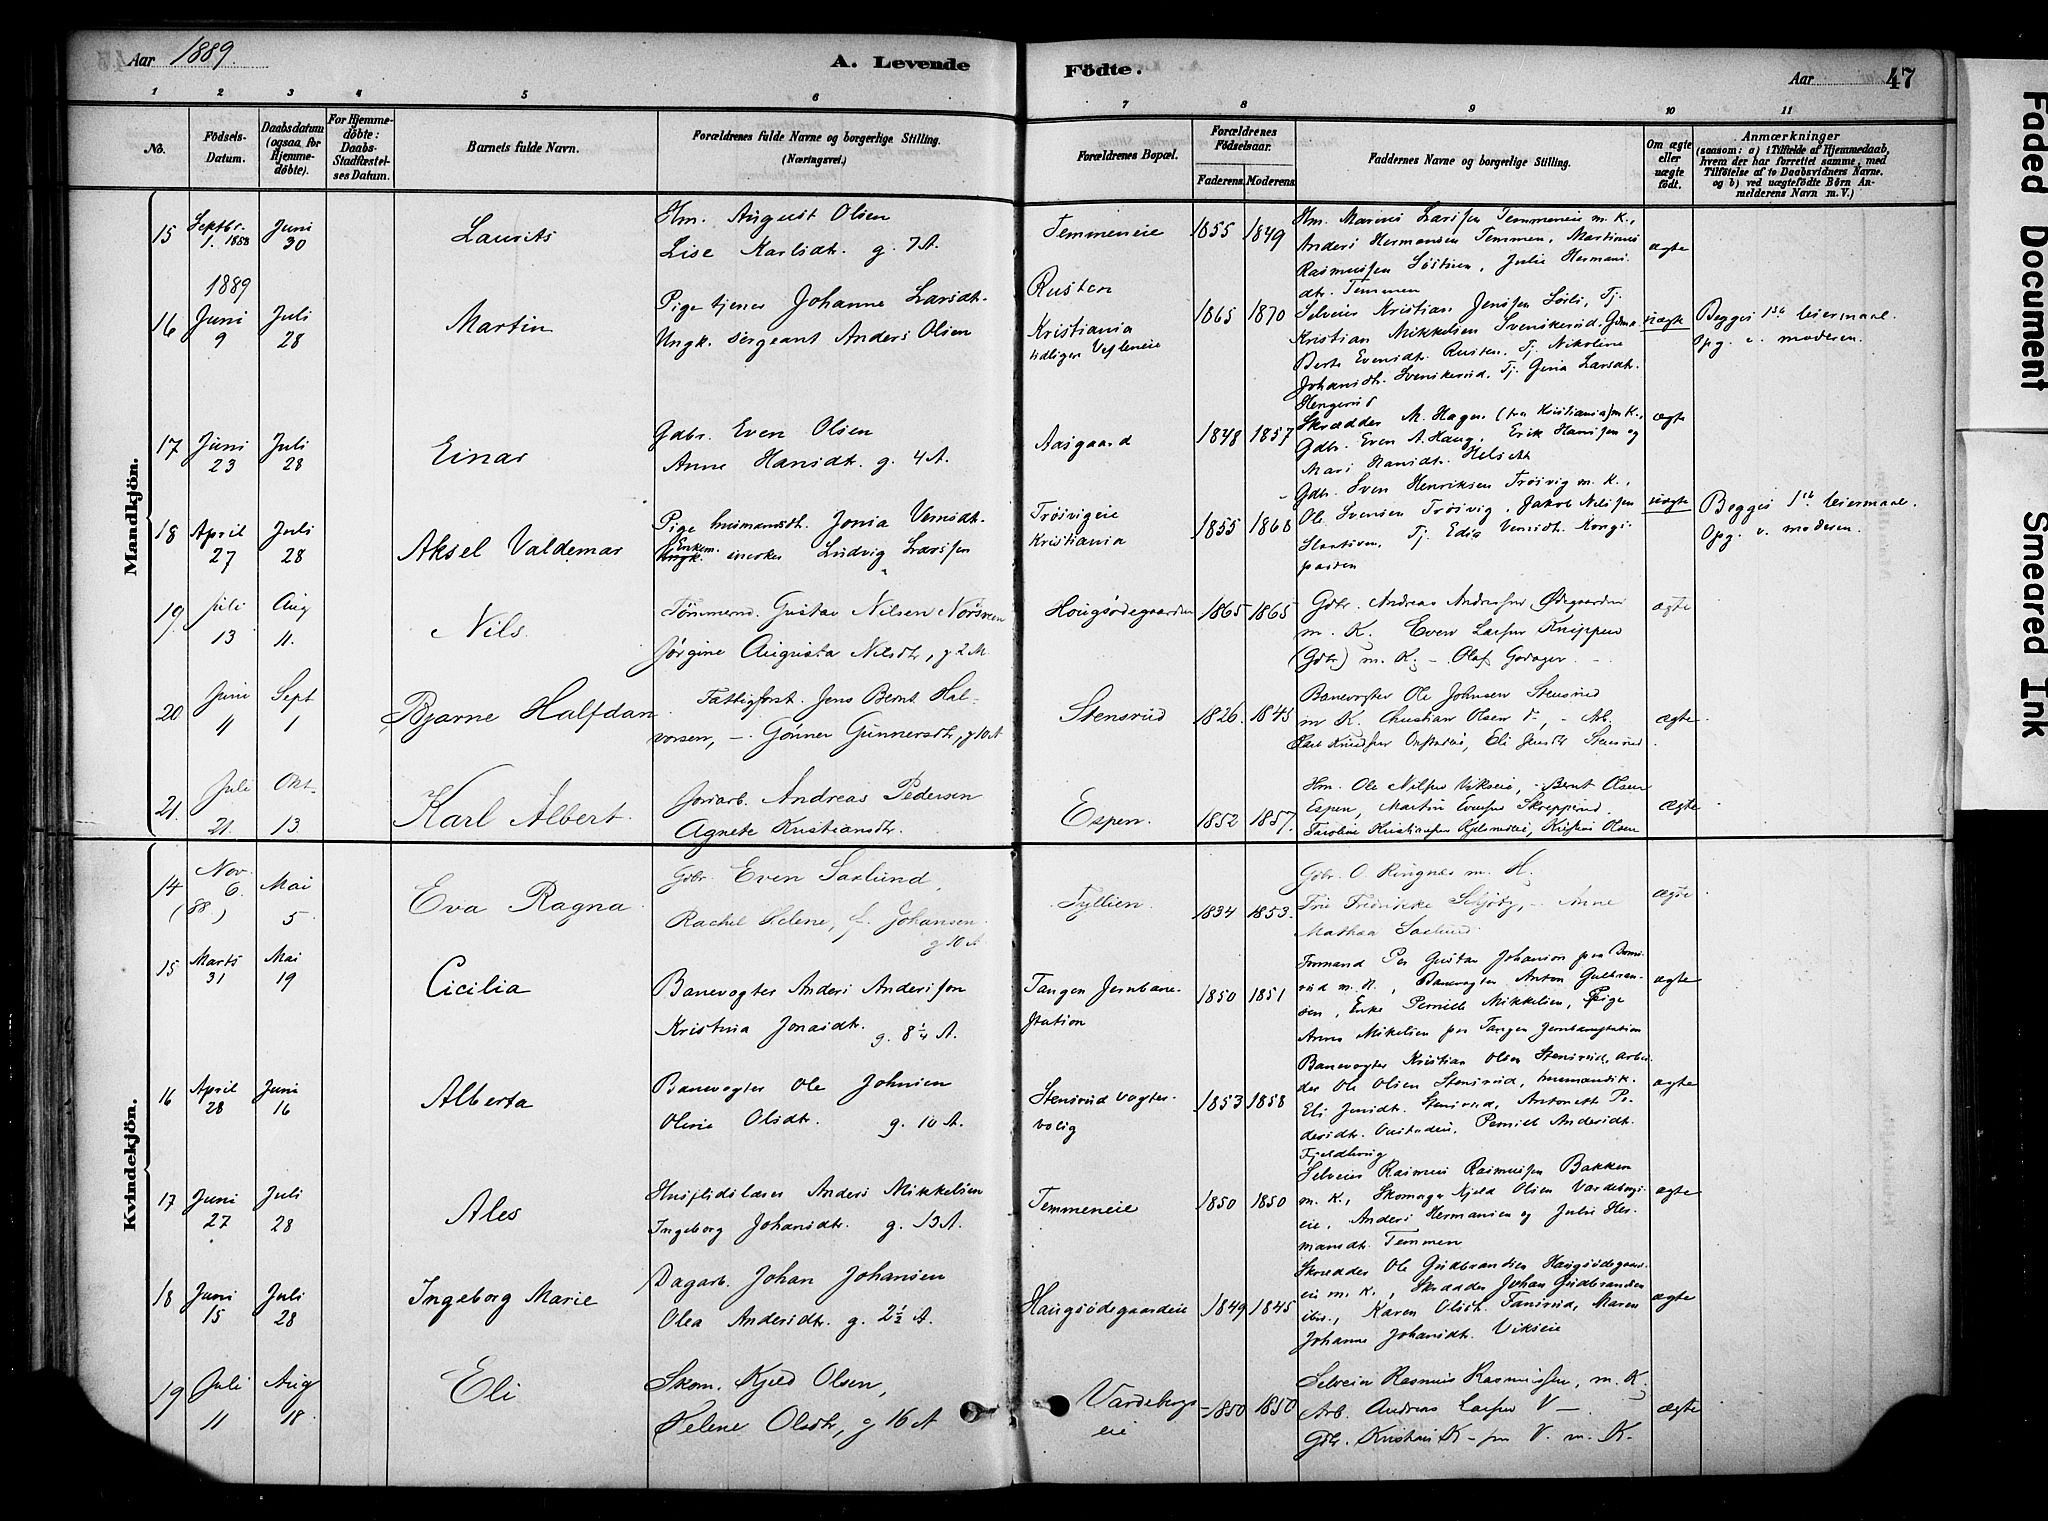 Aar 1889. A. Levende Födte. Aar 47
1 2 3 4 5 6 7 8 9 10 11
No.
Födsels-Datum.
Daabsdatum (ogsaa for Hjemmedöbte).
For Hjemmedöbte: Daabs-Stadfæstelses Datum.
Barnets fulde Navn.
Forældrenes fulde Navne og borgerlige Stilling.
(Næringsvei.)
Forældrenes Bopæl.
Forældrenes Födselsaar.
Faderens. Moderens.
Faddernes Navne og borgerlige Stilling.
Om ægte eller uægte födt.
Anmærkninger
(saasom: a) i Tilfælde af Hjemmedaab,
hvem der har forrettet samme, med
Tilföielse af to Daabsvidners Navne.
og b) ved uægtefödte Börn Anmelderens Navn m. V.)
Mandkjön.
15 Septbr. 1. 1888 Juni 30 Laurits
Hm. August Olsen
Lise Karlsdtr. g. 7 A.
Temmeneie 1855 1849
Hm. Marius Larssen Temmeneie m. K.,
Anders Hermansen Temmen, Martinus
Rasmussen, Julie Hermansdtr. Temmen
ægte
1889
16 Juni 9 Juli 28 Martin
Pige tjener Johanne Larsdtr.
Ungk. sergeant Anders Olsen
Rusten
Kristiania
tidligere Vesleneie
1865 1870
Selveier Kristian Jenssen, Tj.
Kristian Mikkelsen Svenskerud,
Berte Evensdtr. Rusten, Tj. Nikoline
Johansdtr. Svenskerud, Tj. Gina Larsdtr.
Hengerud
uægte
Begges 1ste leiermaal.
Opg. v. moderen.
17 Juni 23 Juli 28 Einar
Gdbr. Even Olsen
Anne Hansdtr. g. 4 A.
Aasgaard 1848 1857
Skrædder M. Hagen (fra Kristiania) m K.,
Gdbr. Even A. Haug, Erik Hanssen og
Mari Hansdtr. Helseth
ægte
18 April 27 Juli 28 Aksel Valdemar
Pige husmandsdtr. Jonia
Ungk. Enkem. snekker Ludvig Larssen
Tröivigeie
Kristiania
1855 1868
Gdbr. Sven Henriksen Tröivig m. K.,
Ole Svensen Tröivig, Jakob Nilssen
Tj.
uægte
Begges 1ste leiermaal.
Opg. v. moderen.
19 Juli 13 Aug 11. Nils.
Tømmerm. Gustav Nilsen
Jørgine Augusta Nilsdtr, g 2 A.
Hougsödegaarden 1865 1865
Gdbr. Andreas Andressen Ødegaarden
m. K. Even Larssen Knippen
(Gdbr) m. K; – Olaf Godager. –
ægte
20 Juni 11 Sept 1 Bjarne Halfdan
Fattigforst. Jens Bernt Halvorsen, – Gunnersdtr, g 10 A
Stensrud 1826. 1845
Banevogter Ole Johnsen Stensrud
m K. Christian Olsen d°, – Arb.
Eli Jensdtr Stensrud.
ægte
21. Juli 21. Okt. 13. Karl Albert.
Jordarb. Andreas Pedersen
Agnete Kristiansdtr.
Espen. 1852 1857.
Hm. Ole Nilssen Vikseie, – Bernt Olsen
Espen, Martin Evensen Skrepperud,
ægte
Kvindekjön.
14 Nov. 6. (88) Mai 5 Eva Ragna.
Gdbr. Even Saxlund,
Rachel Helene, f. Johansen.
g 10 A.
Tyllien. 1834 1853.
Gdbr. O. Ringnæs m. H.
Anne
Mathea Saxlund
ægte
15 Marts 31 Mai 19 Cicilia
Banevogter Anders Andersson
Kristina Jonasdtr. g. 8 1/4 A.
Tangen Jernbanestation
1850 1851
Formand Per Gustav Johanson
m. K., Banevogter Anton Gulbransen, Enke Pernille Mikkelsen, Pige
Anna Mikelsen fra Tangen Jernbanestation
ægte
16 April 28 Juni 16 Alberta
Banevogter Ole Johnsen
Oline Olsdtr. g. 10 A.
Stensrud vogterbolig
1853 1858
Banevogter Kristian Olsen Stensrud, arbeider Ole Olsen Stensrud,
Eli Jensdtr. Stensrud, Antonette Pedersdtr., Pernille Andersdtr.
ægte
17 Juni 27 Juli 28 Ales
Husflidslærer Anders Mikkelsen
Ingeborg Johansdtr. g. 13 A.
Temmeneie 1850 1850
Selveier Rasmus Rasmussen Bakken
m. K., Skomager Kjeld Olsen Vardebergseie, Anders Hermansen og Julie Hermansdtr. Temmen
ægte
18 Juni 15 Juli 28 Ingeborg Marie
Dagarb. Johan Johansen
Olea Andersdtr. g. 2 1/2 A.
Haugsödegaardeie 1849 1845
Skrædder Ole Gudbrandsen Haugsödegaardseie m. K., Skrædder Johan Gudbrandsen
ibn., Karen Olsdtr. Fansrud, Maren
Johanne Johansdtr. Vikseie
ægte
19 Juli 11 Aug 18. Eli
Skom. Kjeld Olsen,
Helene Olsdtr, g 16 A
Vardebergseie 1850 1850
Selveier Rasmus Rasmussen, m. K.
Arb. Andreas Larssen V –.
Gdbr. Kristian K – fra V. m. K.
ægte
Faded Document
Smeared Ink